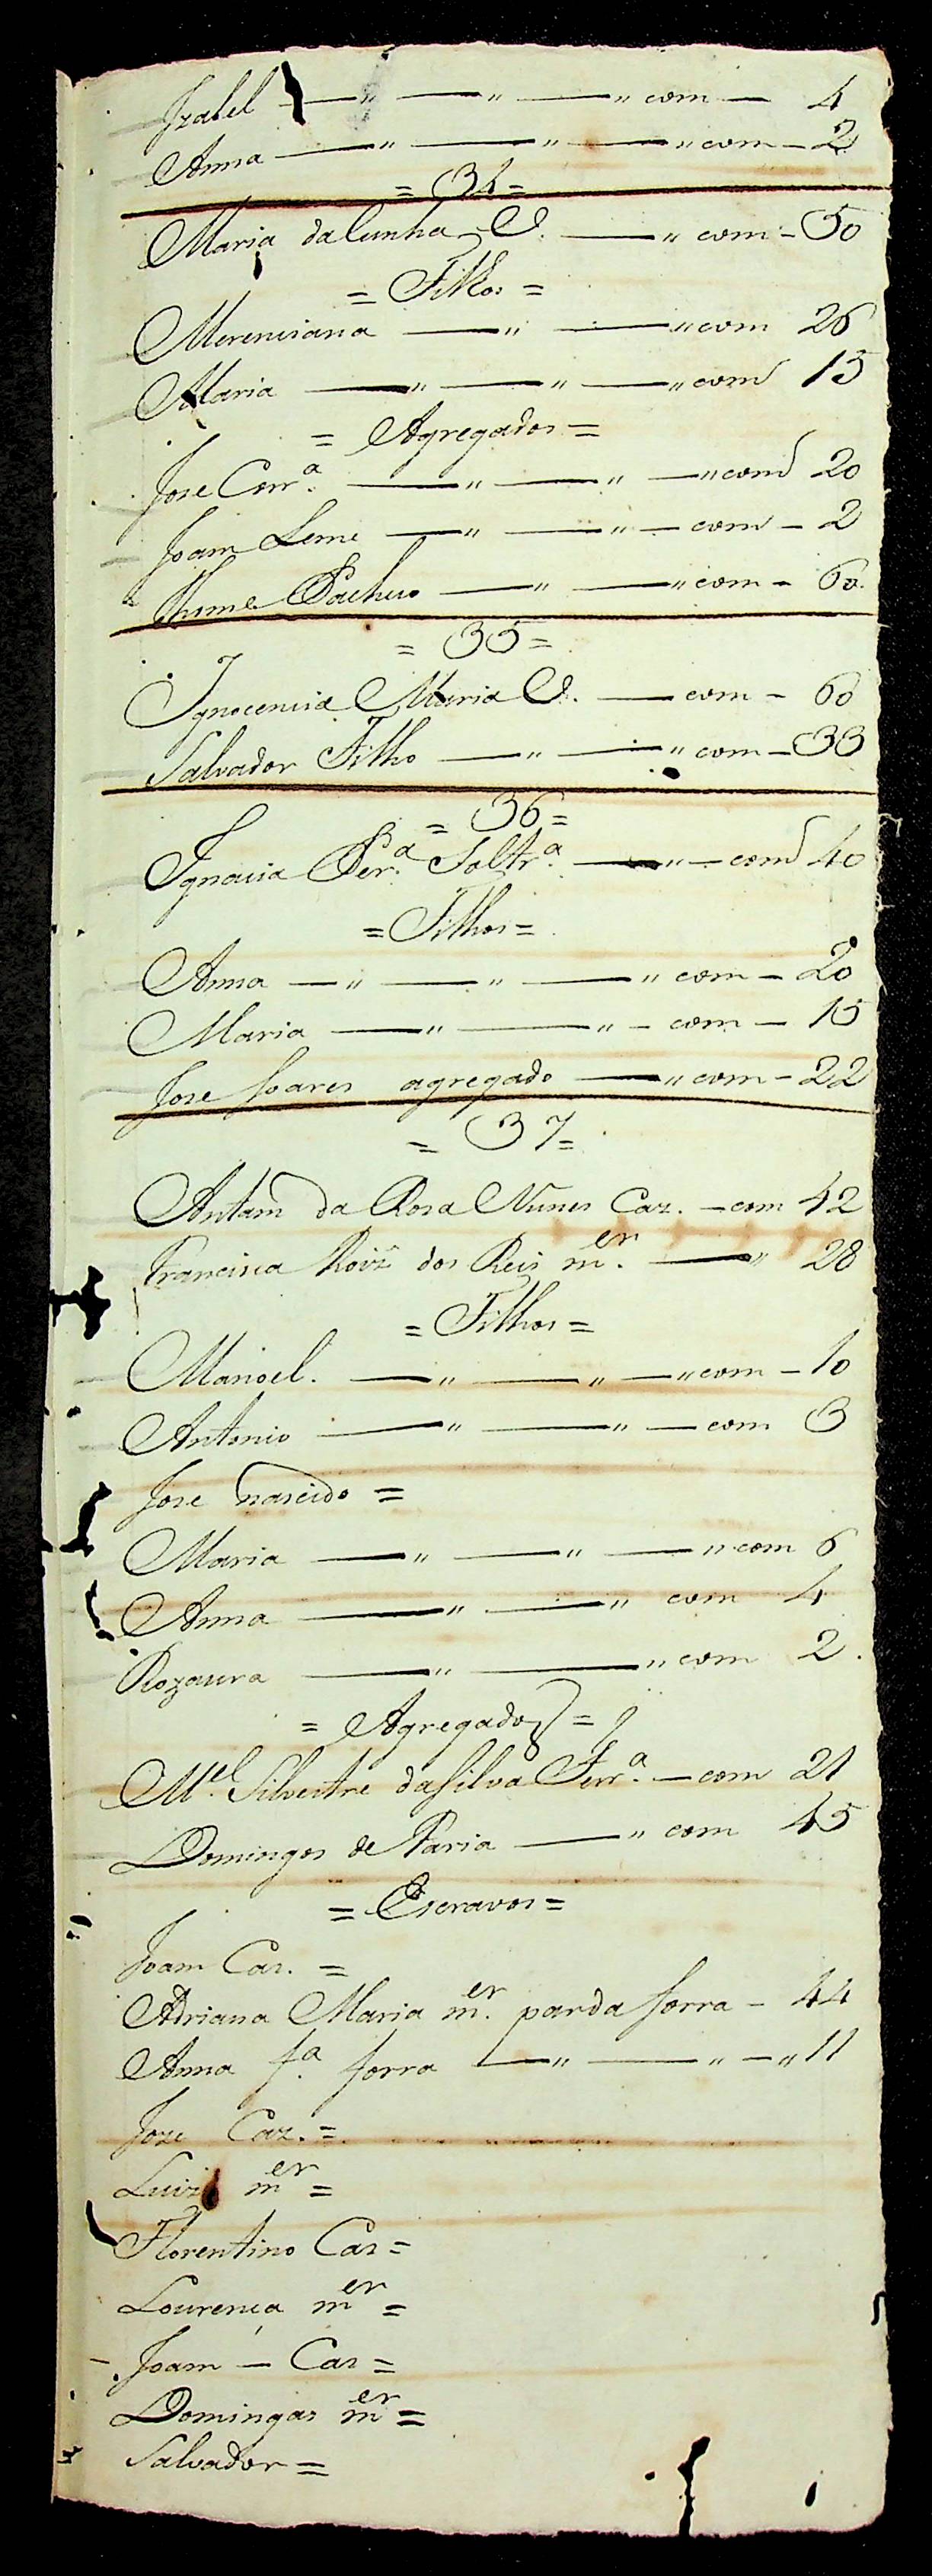 Izabel — " — " — " com — 4
Anna — " — " — " com — 2
= 34 =
Maria da Cunha V. — " com — 50
= Filhos =
Merenciana — " — " com 26
Maria — " — " — " com 15
= Agregados =
Jose Corr.ª — " — " — " com 20
Joam Leme — " — " — com — 2
Thome Pacheco — " — " com — 60.
= 35 =
Ignocencia Maria V. — com — 60
Salvador Filho — " — " com — 33
= 36 =
Ignacia Per.ª Soltr.ª — " — com 40
= Filhos =
Anna — " — " — " com — 20
Maria — " — " — com — 15
Jose Soares agregado — " com — 22
= 37 =
Antam da Rosa Nunes Caz. — com 42
Francisca Roiz dos Reis m.er — " 28
= Filhos =
Manoel. — " — " — " com — 10
Antonio — " — " — com 3
Jose nascido =
Maria — " — " — " com 6
Anna — " — " com 4
Rozaura — " — " com 2.
= Agregados =
M.el Silvestre da Silva Ferr.ª — com 21
Domingos de Faria — " com 45
= Escravos =
Joam Caz. =
Adriana Maria m.er parda forra — 44
Anna f.ª forra — " — " — " 11
Joze Caz. =
Luiza m.er =
Florentino Caz =
Lourença m.er =
Joam — Caz =
Domingas m.er =
Salvador =